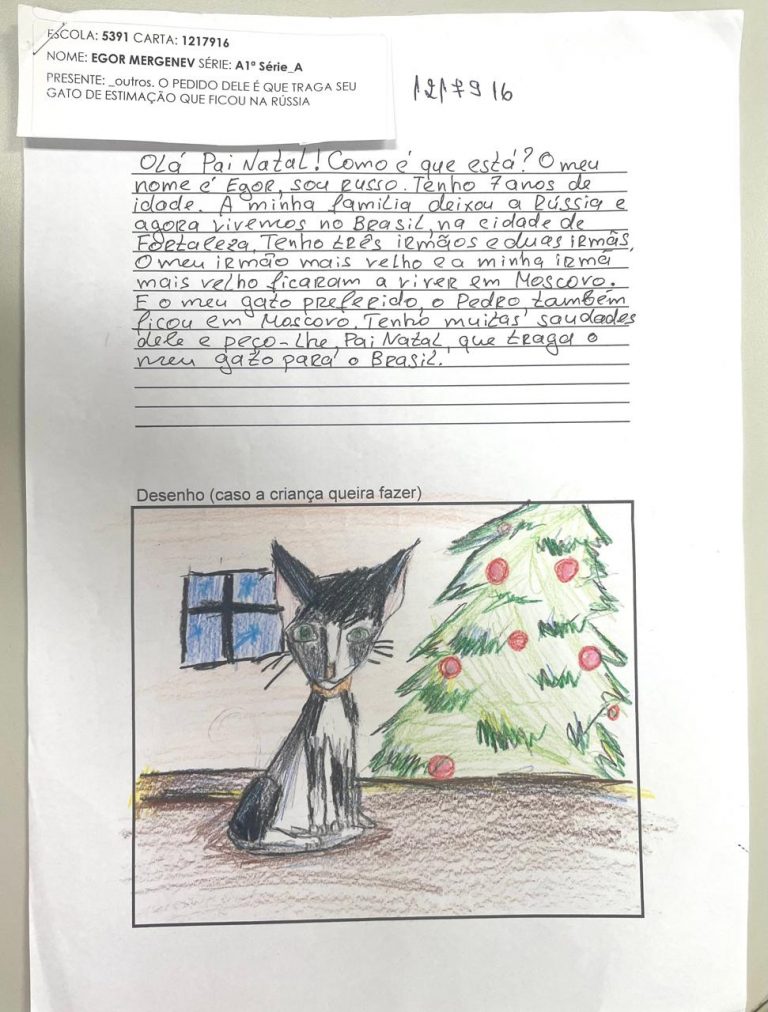 ESCOLA: 5391 CARTA: 1217916
NOME: EGOR MERGENEV SÉRIE: A1º Série_A
PRESENTE: _outros. O PEDIDO DELE É QUE TRAGA SEU
GATO DE ESTIMAÇÃO QUE FICOU NA RÚSSIA
1217916
Olá Pai Natal! Como é que está? O meu
nome é Egor, sou russo. Tenho 7 anos de
idade. A minha familia deixou a Rússia e
agora vivemos no Brasil, na cidade de
Fortaleza. Tenho três irmãos e duas irmãs.
O meu irmão mais velho e a minha irmã
mais velho ficaram a viver em Moscovo.
E o meu gato preferido, o Pedro também
ficou em Moscovo. Tenho muitas saudades
dele e peço-lhe, Pai Natal, que traga o
meu gato para o Brasil.
Desenho (caso a criança queira fazer)